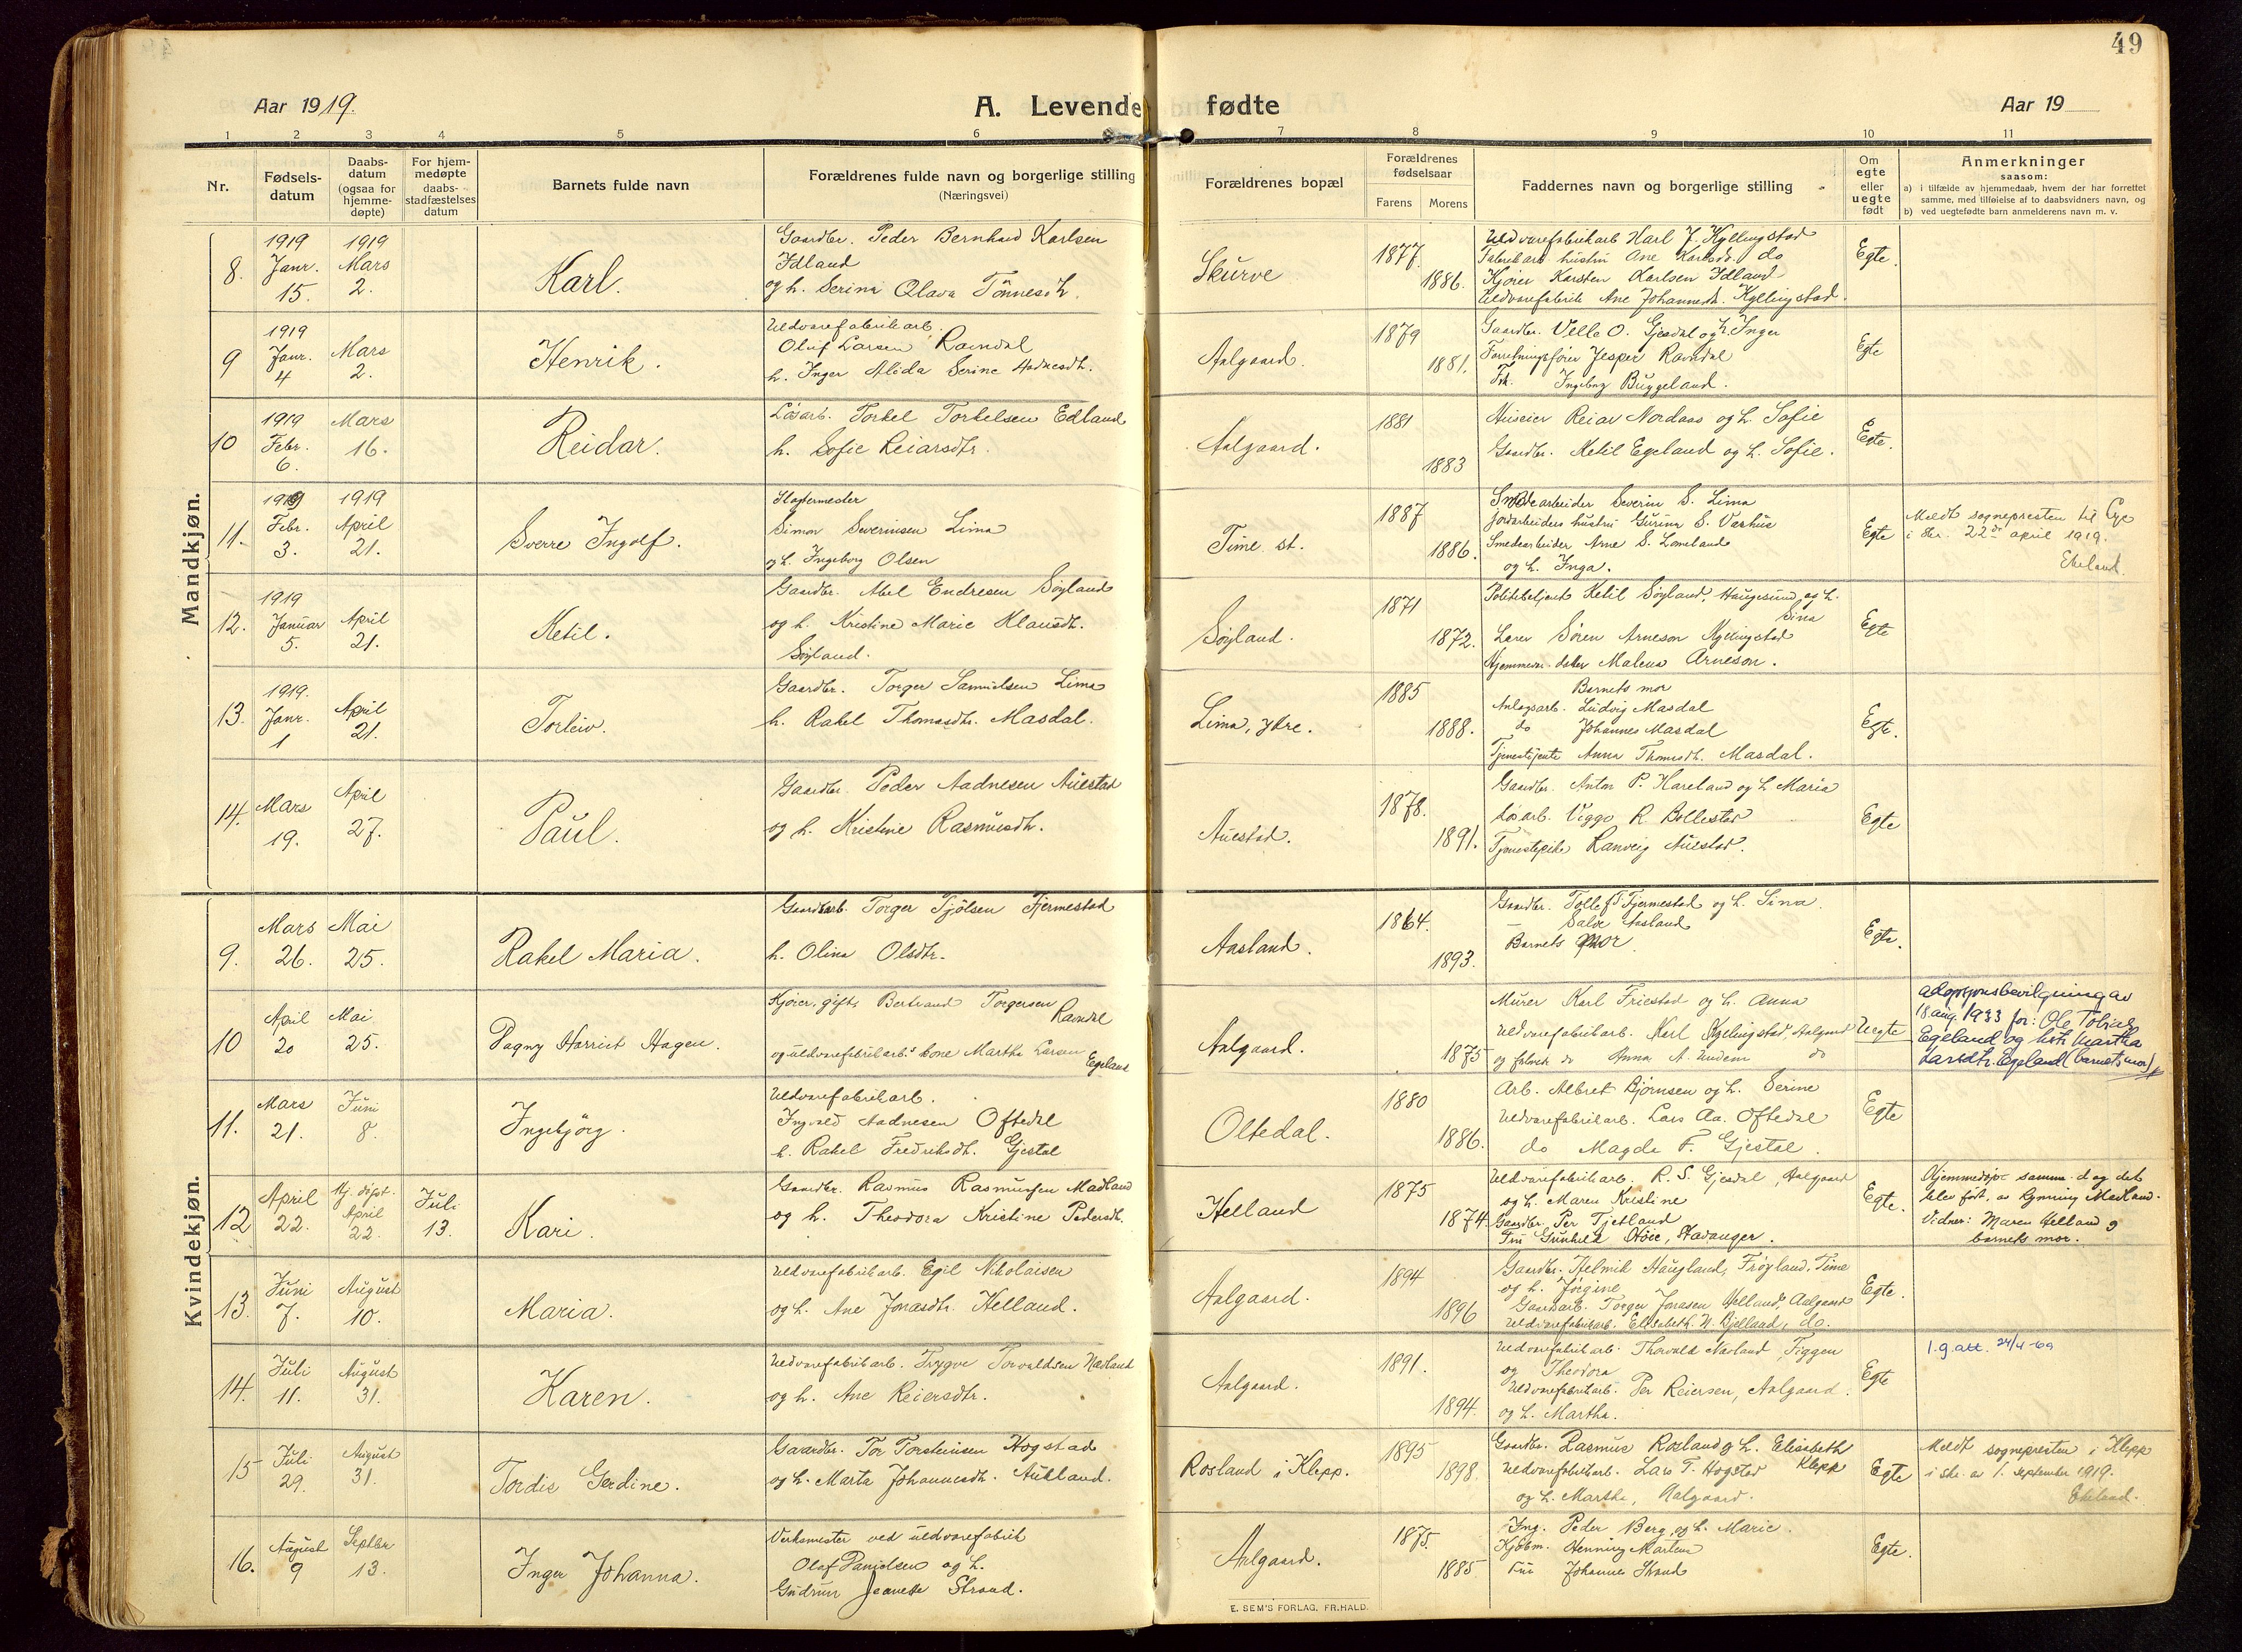 49
Aar 1919.
A. Levende fødte
Aar 19
1 2 3 4 5 6 7 8 9 10 11
Nr.
Fødsels-
datum
Daabs-
datum
(ogsaa for
hjemme-
døpte)
For hjem-
medøpte
daabs-
stadfæstelses
datum
Barnets fulde navn
Forældrenes fulde navn og borgerlige stilling
(Næringsvei)
Forældrenes bopæl
Forældrenes
fødselsaar
Farens Morens
Faddernes navn og borgerlige stilling
Om
egte
eller
uegte
født
Anmerkninger
saasom:
a) i tilfælde av hjemmedaab, hvem der har forrettet
samme, med tilføielse af to daabsvidners navn, og
b) ved uegtefødte barn anmelderens navn m. v.
Mandkjøn.
8.
1919
Janr.
15.
1919
Mars
2.
Karl.
Gaardbr. Peder Bernhard Karlsen
Idland
og h. Serina Olava Tönnesdh.
Skurve
1877.
1886.
Uldvarefabrikarb Karl J. Kyllingstad
Fabrikarb hustru Ane Karlsdr. do
Kjører Karsten Karlsen Idland
Uldvarefabrik Ane Johannesdr. Kyllingstad.
Egte.
9
1919
Janr.
4
Mars
2.
Henrik.
Uldvarefabrikarb.
Oluf Larsen Ravndal
h. Inger Alida Serine Aadnesdh.
Aalgaard.
1879
1881.
Gaardbr. Velle O. Gjesdal og h. Inger
Forretningsfører Jesper Ravndal
Frk. Ingeborg Buggeland.
Egte
10
1919
Febr.
6.
Mars
16.
Reidar.
Løsarb. Torkel Torkelsen Edland
h. Sofie Reiarsdtr.
Aalgaard.
1881
1883
Huseier Reiar Nordaas og h. Sofie
Gaardbr. Ketil Egeland og h. Sofie.
Egte.
11.
1919
Febr.
3.
1919
April
21.
Sverre Ingolf.
Slagtermester
Simon Severinsen Lima
og h. Ingeborg Olsen
Time st.
1887
1886.
Smedearbeider Severin S. Lima
Jordarbeiders hustru Gurina S. Varhus
Smedearbeider Arne S. Lomeland
og h. Inga.
Egte
Meldt sognepresten til Lye
i skr. 22de april 1919.
Ekeland.
12.
1919
Januar
5.
April
21.
Ketil.
Gaardbr. Abel Endresen Søyland
og h. Kristine Marie Klausdh.
Søyland.
Søyland.
1871
1872.
Politibetjent Ketil Søyland, Haugesund, og h.
Sina
Lærer Sören Arneson Kyllingstad
Hjemmevær. datter Malena Arneson.
Egte
13.
1919.
Janr.
1
April
21.
Torleiv.
Gaardbr. Torger Samuelsen Lima
h. Rakel Thomasdtr. Masdal.
Lima, ytre.
1885
1888.
Barnets mor
Anlægsarb. Ludvig Masdal
do Johannes Masdal
Tjenestjente Anna Thomasdh. Masdal.
Egte.
14.
Mars
19.
April
27.
Paul.
Gaardbr. Peder Aadnesen Auestad
og h. Kristine Rasmusdh.
Auestad.
1878.
1891.
Gaardbr. Anton P. Hareland og h. Maria
Løsarb. Viggo R. Bollestad
Tjenestepike Ranveig Auestad.
Egte
Kvindekjøn.
9.
Mars
26.
Mai
25.
Rakel Maria.
Gaardarb. Torger Tjölsen Fjermestad
h. Olina Olsdtr.
Aasland.
1864.
1893.
Gaardbr. Tollef T Fjermestad og h. Sina.
— Salve Aasland
Barnets mor.
Egte.
10
April
20
Mai
25.
Dagny Harriet Hagen.
Kjører, gift, Bertrand Torgersen
Ravndal
og uldvarefabrikarb.s kone Martha Larsen Egeland
Aalgaard.
1875
Murer Karl Friestad og h. Anna
Uldvarefabrikarb. Karl Kyllingstad, Aalgaard
og fabrik do Anna A. Undem do
Uegte
adopsjonsbevilgning av
18 aug. 1933 for: Ole Tobias
Egeland og hstr Martha
Larsdtr. Egeland (barnets mor)
11.
Mars
21.
Juni
8.
Ingebjörg.
Uldvarefabrikarb.
Ingvald Aadnesen Oftedal
h. Rakel Fredriksdh. Gjestal
Oltedal.
1880
1886.
Arb. Albret Bjørnsen og h. Serine
Uldvarefabrikarb. Lars Aa. Oftedal
do Magda F. Gjestal.
Egte
12
April
22.
Hj. döpt.
April
22.
Juli
13.
Kari.
Gaardbr. Rasmus Rasmussen Madland
og h. Theodora Kristine Pedersdh.
Helland
1875
1874.
Uldvarefabrikarb. R. S. Gjesdal, Aalgaard
og h. Maren Kristine
Gaardbr. Per Tjetland
Fru Gunhild Høie, Stavanger.
Egte.
Hjemmedøpt samme dag det
blev født, av Rynning Madland.
Vidner: Maren Helland og
barnets mor.
13.
Juni
7.
August
10.
Maria.
Uldvarefabrikarb. Egil Nikolaisen
og h. Ane Jonasdtr. Helland.
Aalgaard.
1894
1896
Gaardbr. Hjelmik Haugland, Frøyland, Time
og h. Jørgine
Gaardarb. Torger Jonasen Helland, Aalgaard
Uldvarefabrikarb. Elisabeth N. Bjelland, do.
Egte.
14.
Juli
11.
August
31.
Karen.
Uldvarefabrikarb. Trygve Torvaldsen Nævland
og h. Ane Reiersdtr.
Aalgaard.
1891.
1894.
Uldvarefabrikarb. Thorvald Nævland, Figgen
og Theodora
Uldvarefabrikarb. Per Reiersen, Aalgaard.
og h. Martha.
Egte
1. g. att. 24/4-69
15
Juli
29.
August
31.
Tordis Gerdine.
Gaardbr. Tor Torsteinsen Hogstad
og h. Marta Johannesdh. Aukland.
Rosland i Klepp.
1895
1898.
Gaardbr. Rasmus Rosland og h. Elisabeth
Klepp
Uldvarefabrikarb. Lars T. Hogstad
og h. Martha, Aalgaard.
Egte
Meldt sognepresten i Klepp
i skr. av 1. september 1919.
Ekeland.
16.
August
9
Septbr
13.
Inger Johanna.
Verkmester ved uldvarefabrik
Olaf Danielsen og h.
Gudrun Jeanette Strand.
Aalgaard.
1875.
1885.
Ing. Peder Berg, og h. Marie.
Kjøbm. Henning Martens
Fru Johannes Strand
Egte.
E. SEM'S FORLAG, FR.HALD.